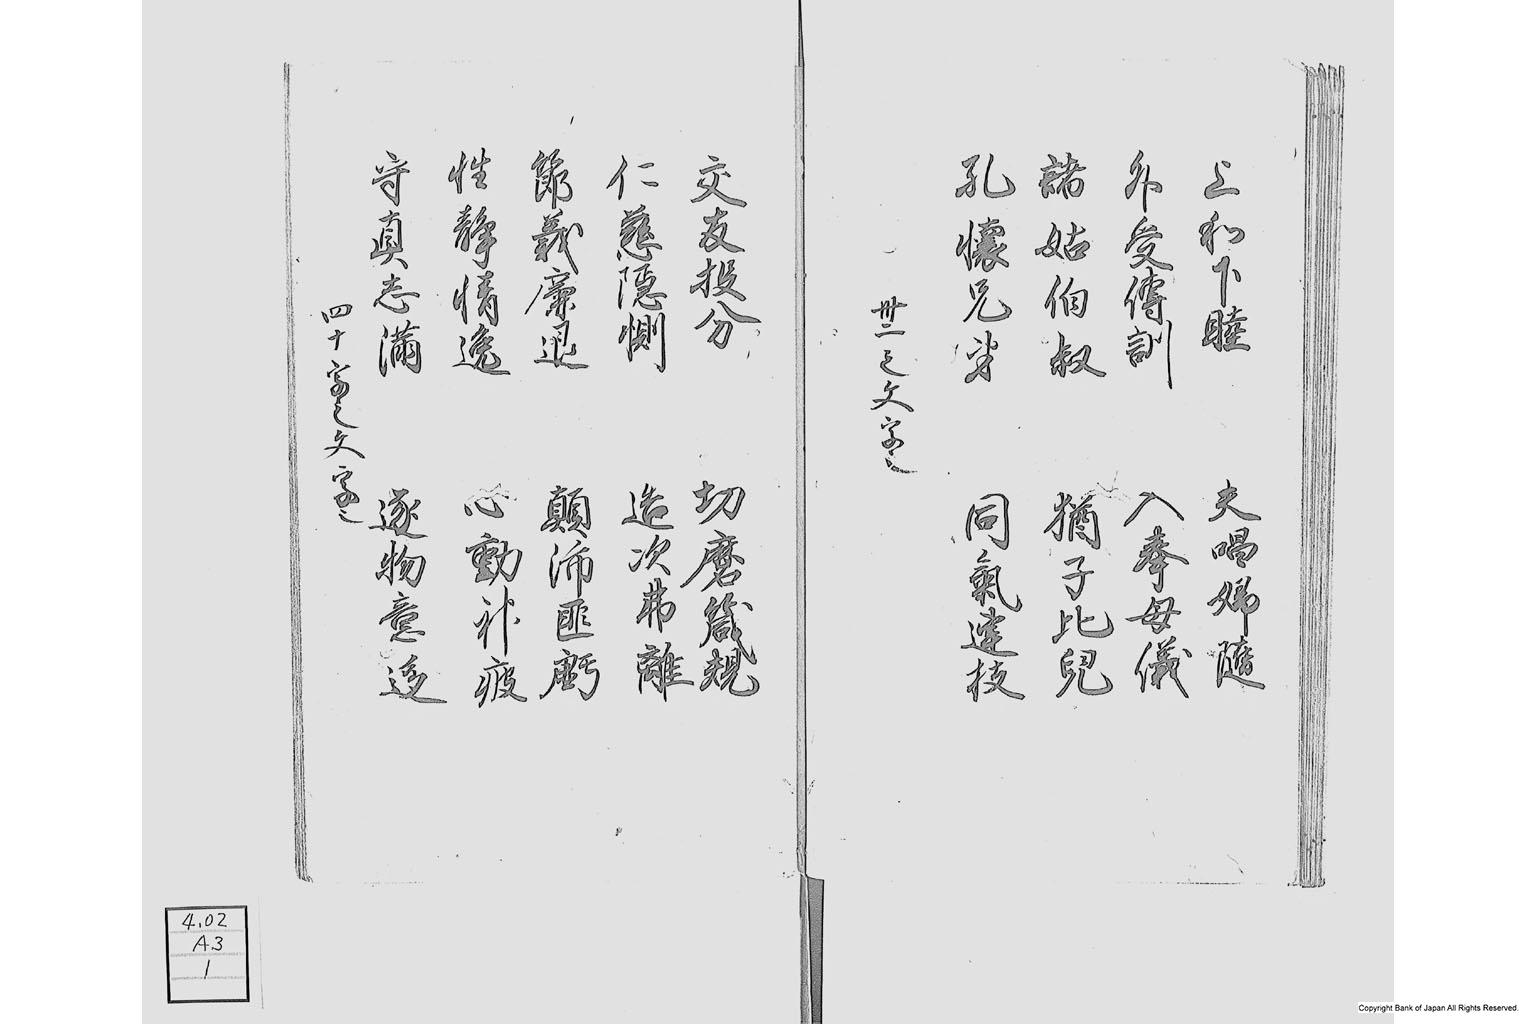 上和下睦　夫唱婦随
外受傅訓　入奉母儀
諸姑伯叔　猶子比兒
孔懷兄弟　同氣連枝
卅二之文字
交友投分　切磨箴規
仁慈隠惻　造次弗離
節義廉退　顛沛匪虧
性静情逸　心動神疲
守真志滿　逐物意移
四十字之文字
4.02
A3
1
Copyright Bank of Japan All Rights Reserved.